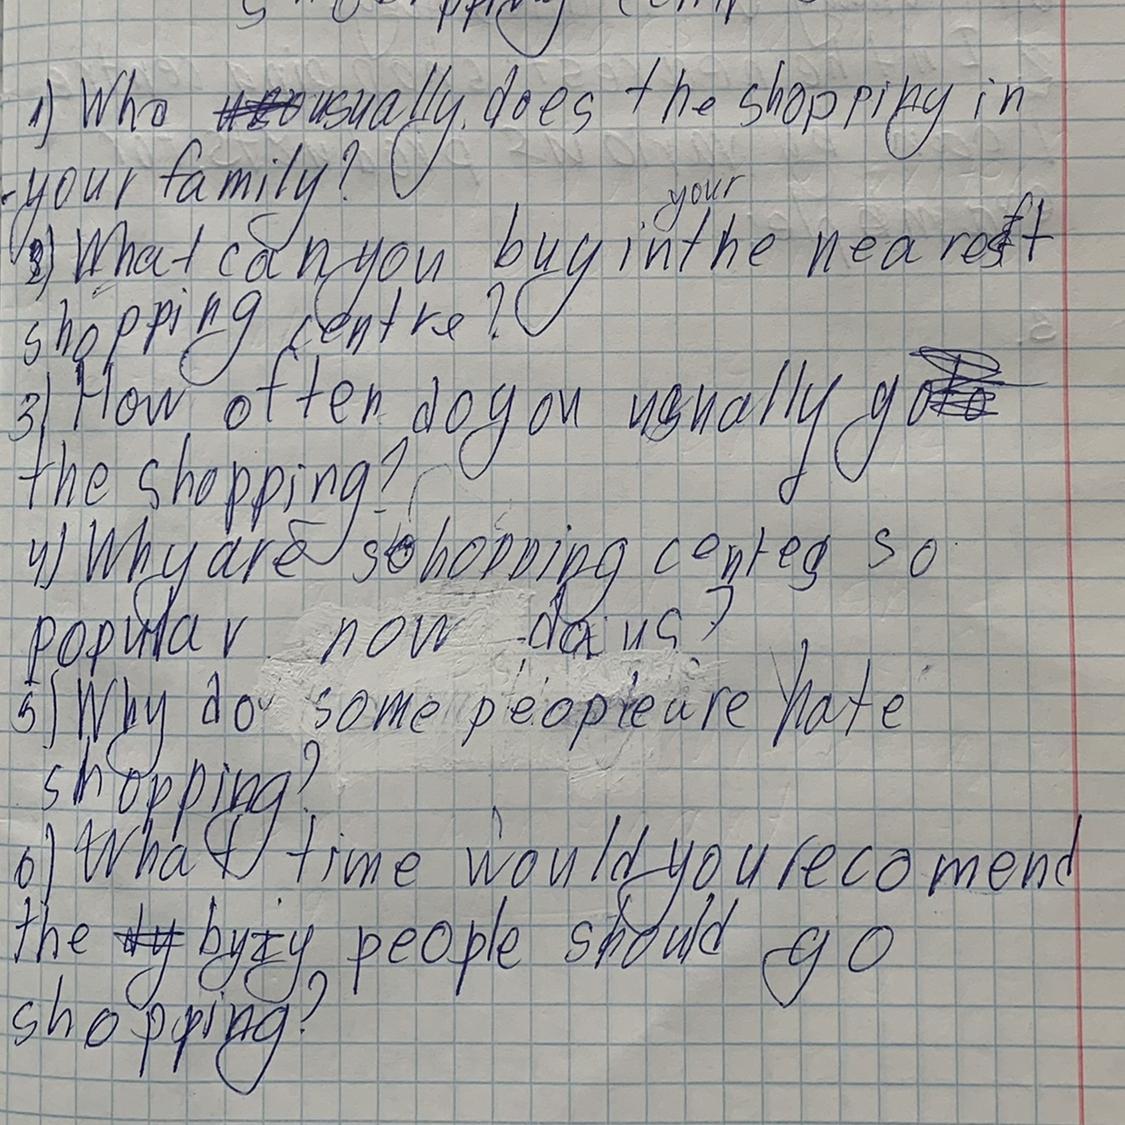 shopping cent
1) Who usually does the shopping in
your family?
your
2) What can you buy in the nearest
shopping centre?
3) How often do you usually go
the shopping?
4) Why are shopping centes so
popular now da us?
5) Why do some people are hate
shopping?
6) What time would you recomend
the byzy people should go
shopping?